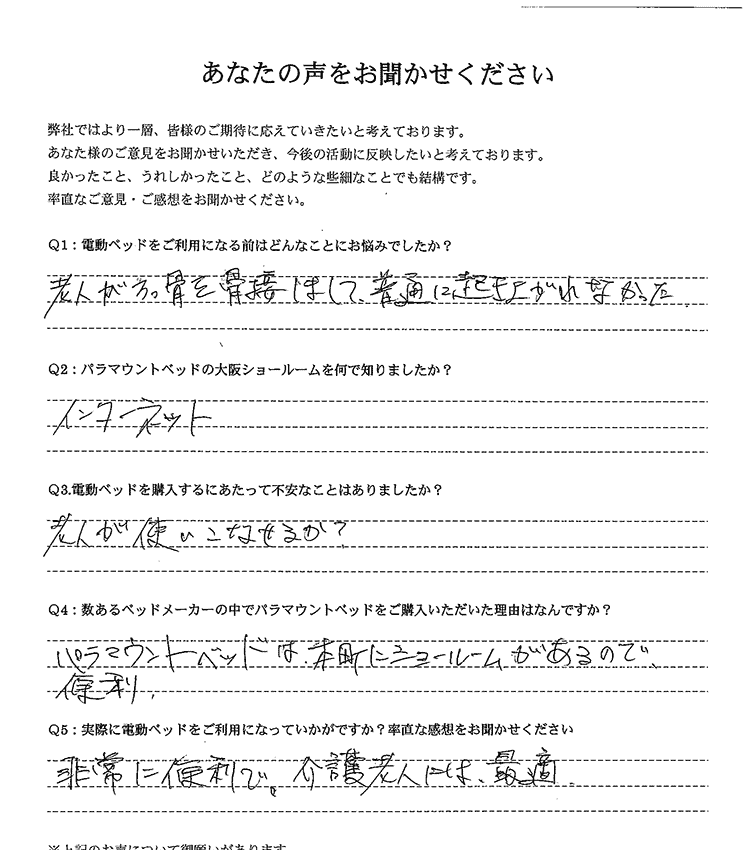 あなたの声をお聞かせください
弊社ではより一層、皆様のご期待に応えていきたいと考えております。
あなた様のご意見をお聞かせいただき、今後の活動に反映したいと考えております。
良かったこと、うれしかったこと、どのような些細なことでも結構です。
率直なご意見・ご感想をお聞かせください。
Q1：電動ベッドをご利用になる前はどんなことにお悩みでしたか？
老人が 骨を骨接ましして、普通に起き上がれなかった.
Q2：パラマウントベッドの大阪ショールームを何で知りましたか？
インターネット
Q3.電動ベッドを購入するにあたって不安なことはありましたか？
老人が使いこなせるか？
Q4：数あるベッドメーカーの中でパラマウントベッドをご購入いただいた理由はなんですか？
パラマウントベッドは、本町にショールームがあるので、
便利.
Q5：実際に電動ベッドをご利用になっていかがですか？率直な感想をお聞かせください
非常に便利で。介護老人には、最適.
※上記のお声について御願いがあります